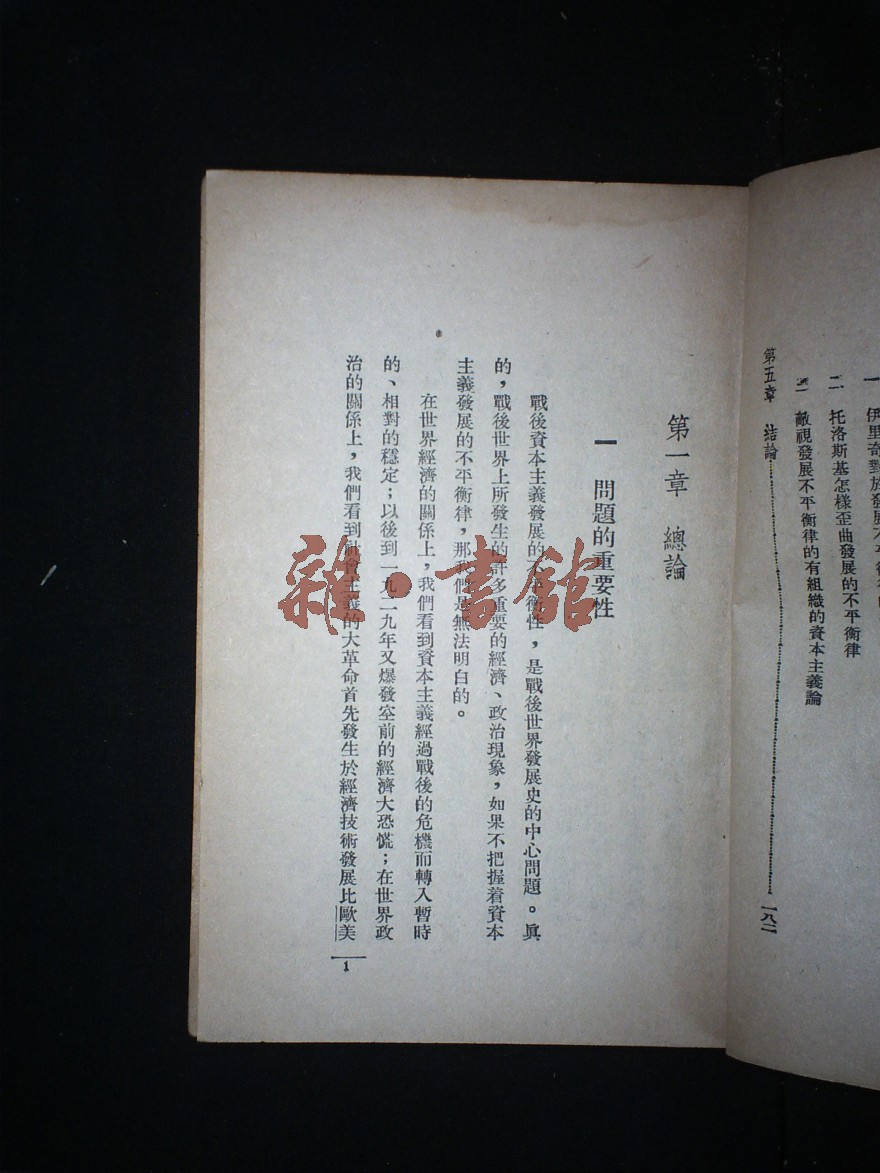 一 伊里奇對於發展不平衡律
二 托洛斯基怎樣歪曲發展的不平衡律
三 敵視發展不平衡律的有組織的資本主義論
第五章 結論……一八二
第一章 總論
一 問題的重要性
戰後資本主義發展的不平衡性，是戰後世界發展史的中心問題。眞
的，戰後世界上所發生的許多重要的經濟、政治現象，如果不把握着資本
主義發展的不平衡律，那我們是無法明白的。
在世界經濟的關係上，我們看到資本主義經過戰後的危機而轉入暫時
的、相對的穩定；以後到一九二九年又爆發空前的經濟大恐慌；在世界政
治的關係上，我們看到社會主義的大革命首先發生於經濟技術發展比歐美
1
雜·書館